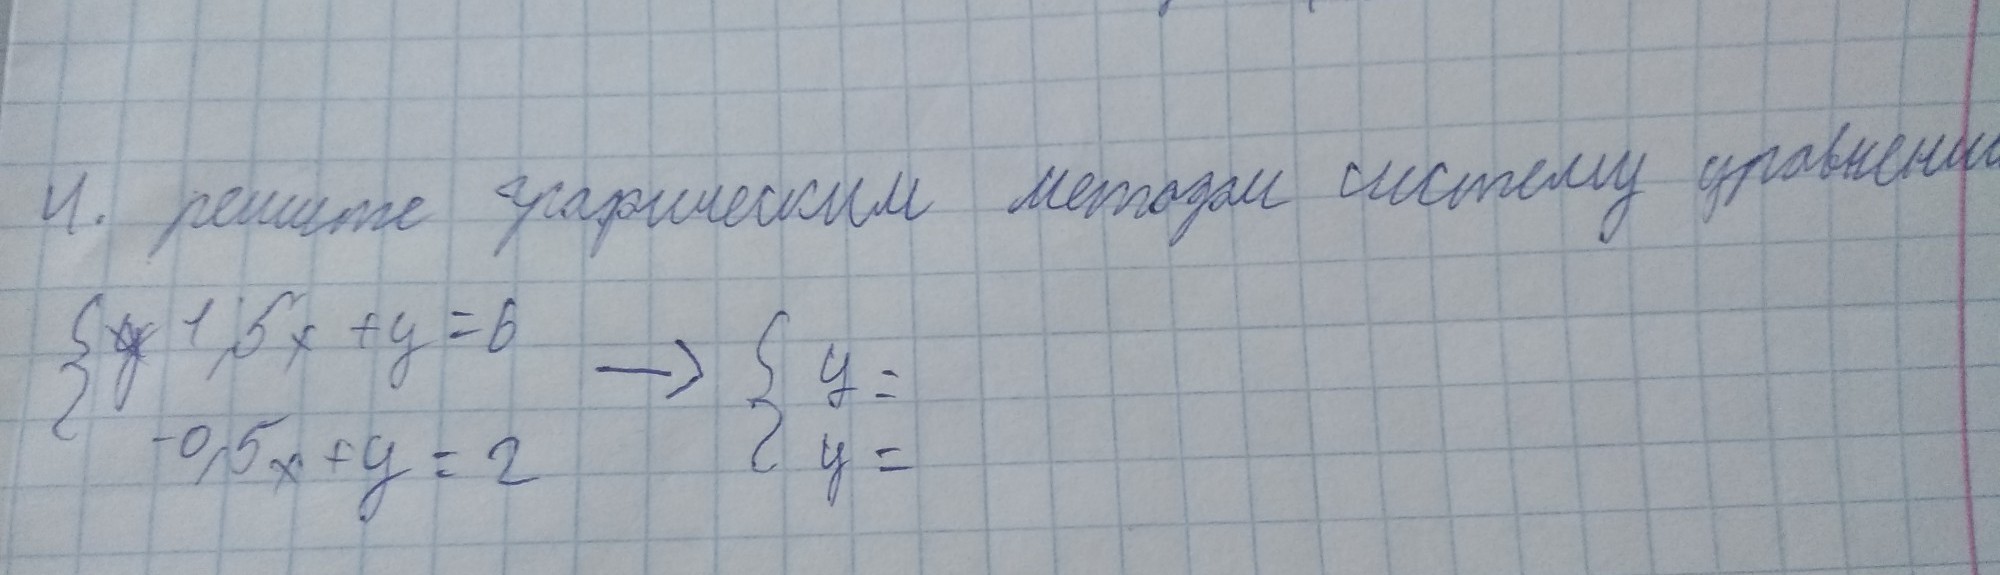 4. решите графическим методом систему уравнени
{ 1,5x + y = 6 → { y =
-0,5x + y = 2 y =